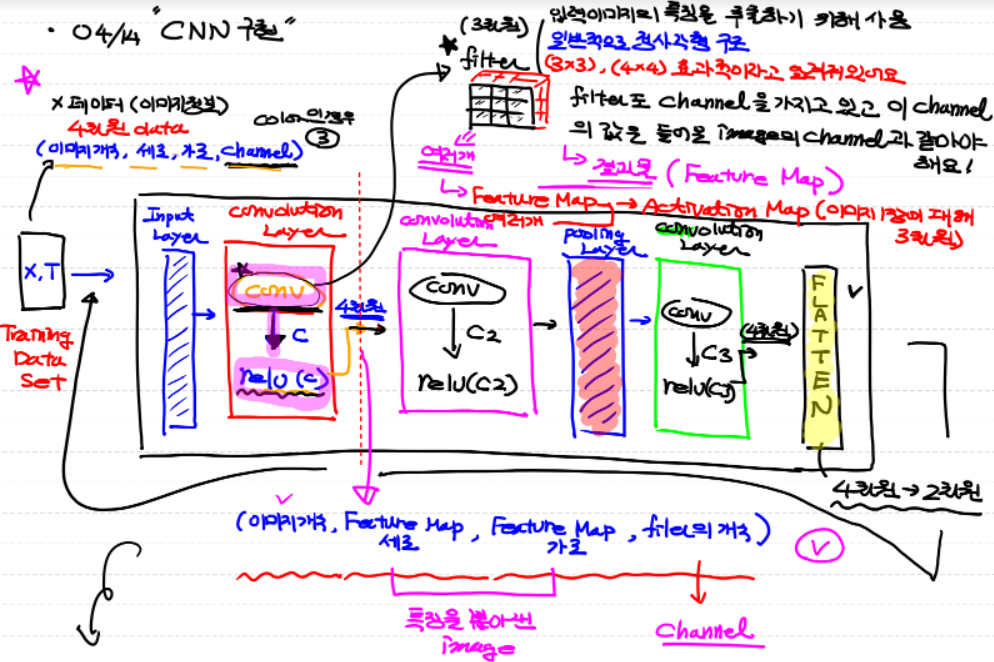 · 04/14 "CNN 구현"
X 데이터 (이미지정보)
4차원 data
(이미지개수, 세로, 가로, channel)
color 이경우
③
(3차원)
filter
입력이미지의 특징을 추출하기 위해 사용
일반적으로 정사각형 구조
(3×3), (4×4) 효과적이라고 알려져있어요
filter도 channel을 가지고 있고 이 channel
의 값은 들어온 image의 channel과 같아야
해요!
여러개
↳ 결과물 (Feature Map)
↳ Feature Map → Activation Map (이미지 1장에 대해
여러개
3차원)
X,T
Training
Data
Set
Input
Layer
convolution
Layer
conv
C
relu(c)
4차원
convolution
Layer
conv
C2
relu(C2)
pooling
Layer
convolution
Layer
conv
C3
relu(C3)
(4차원)
FLATTEN
4차원→2차원
(이미지개수, Feature Map, Feature Map, filter의 개수)
세로
가로
특징을 뽑아낸
image
channel